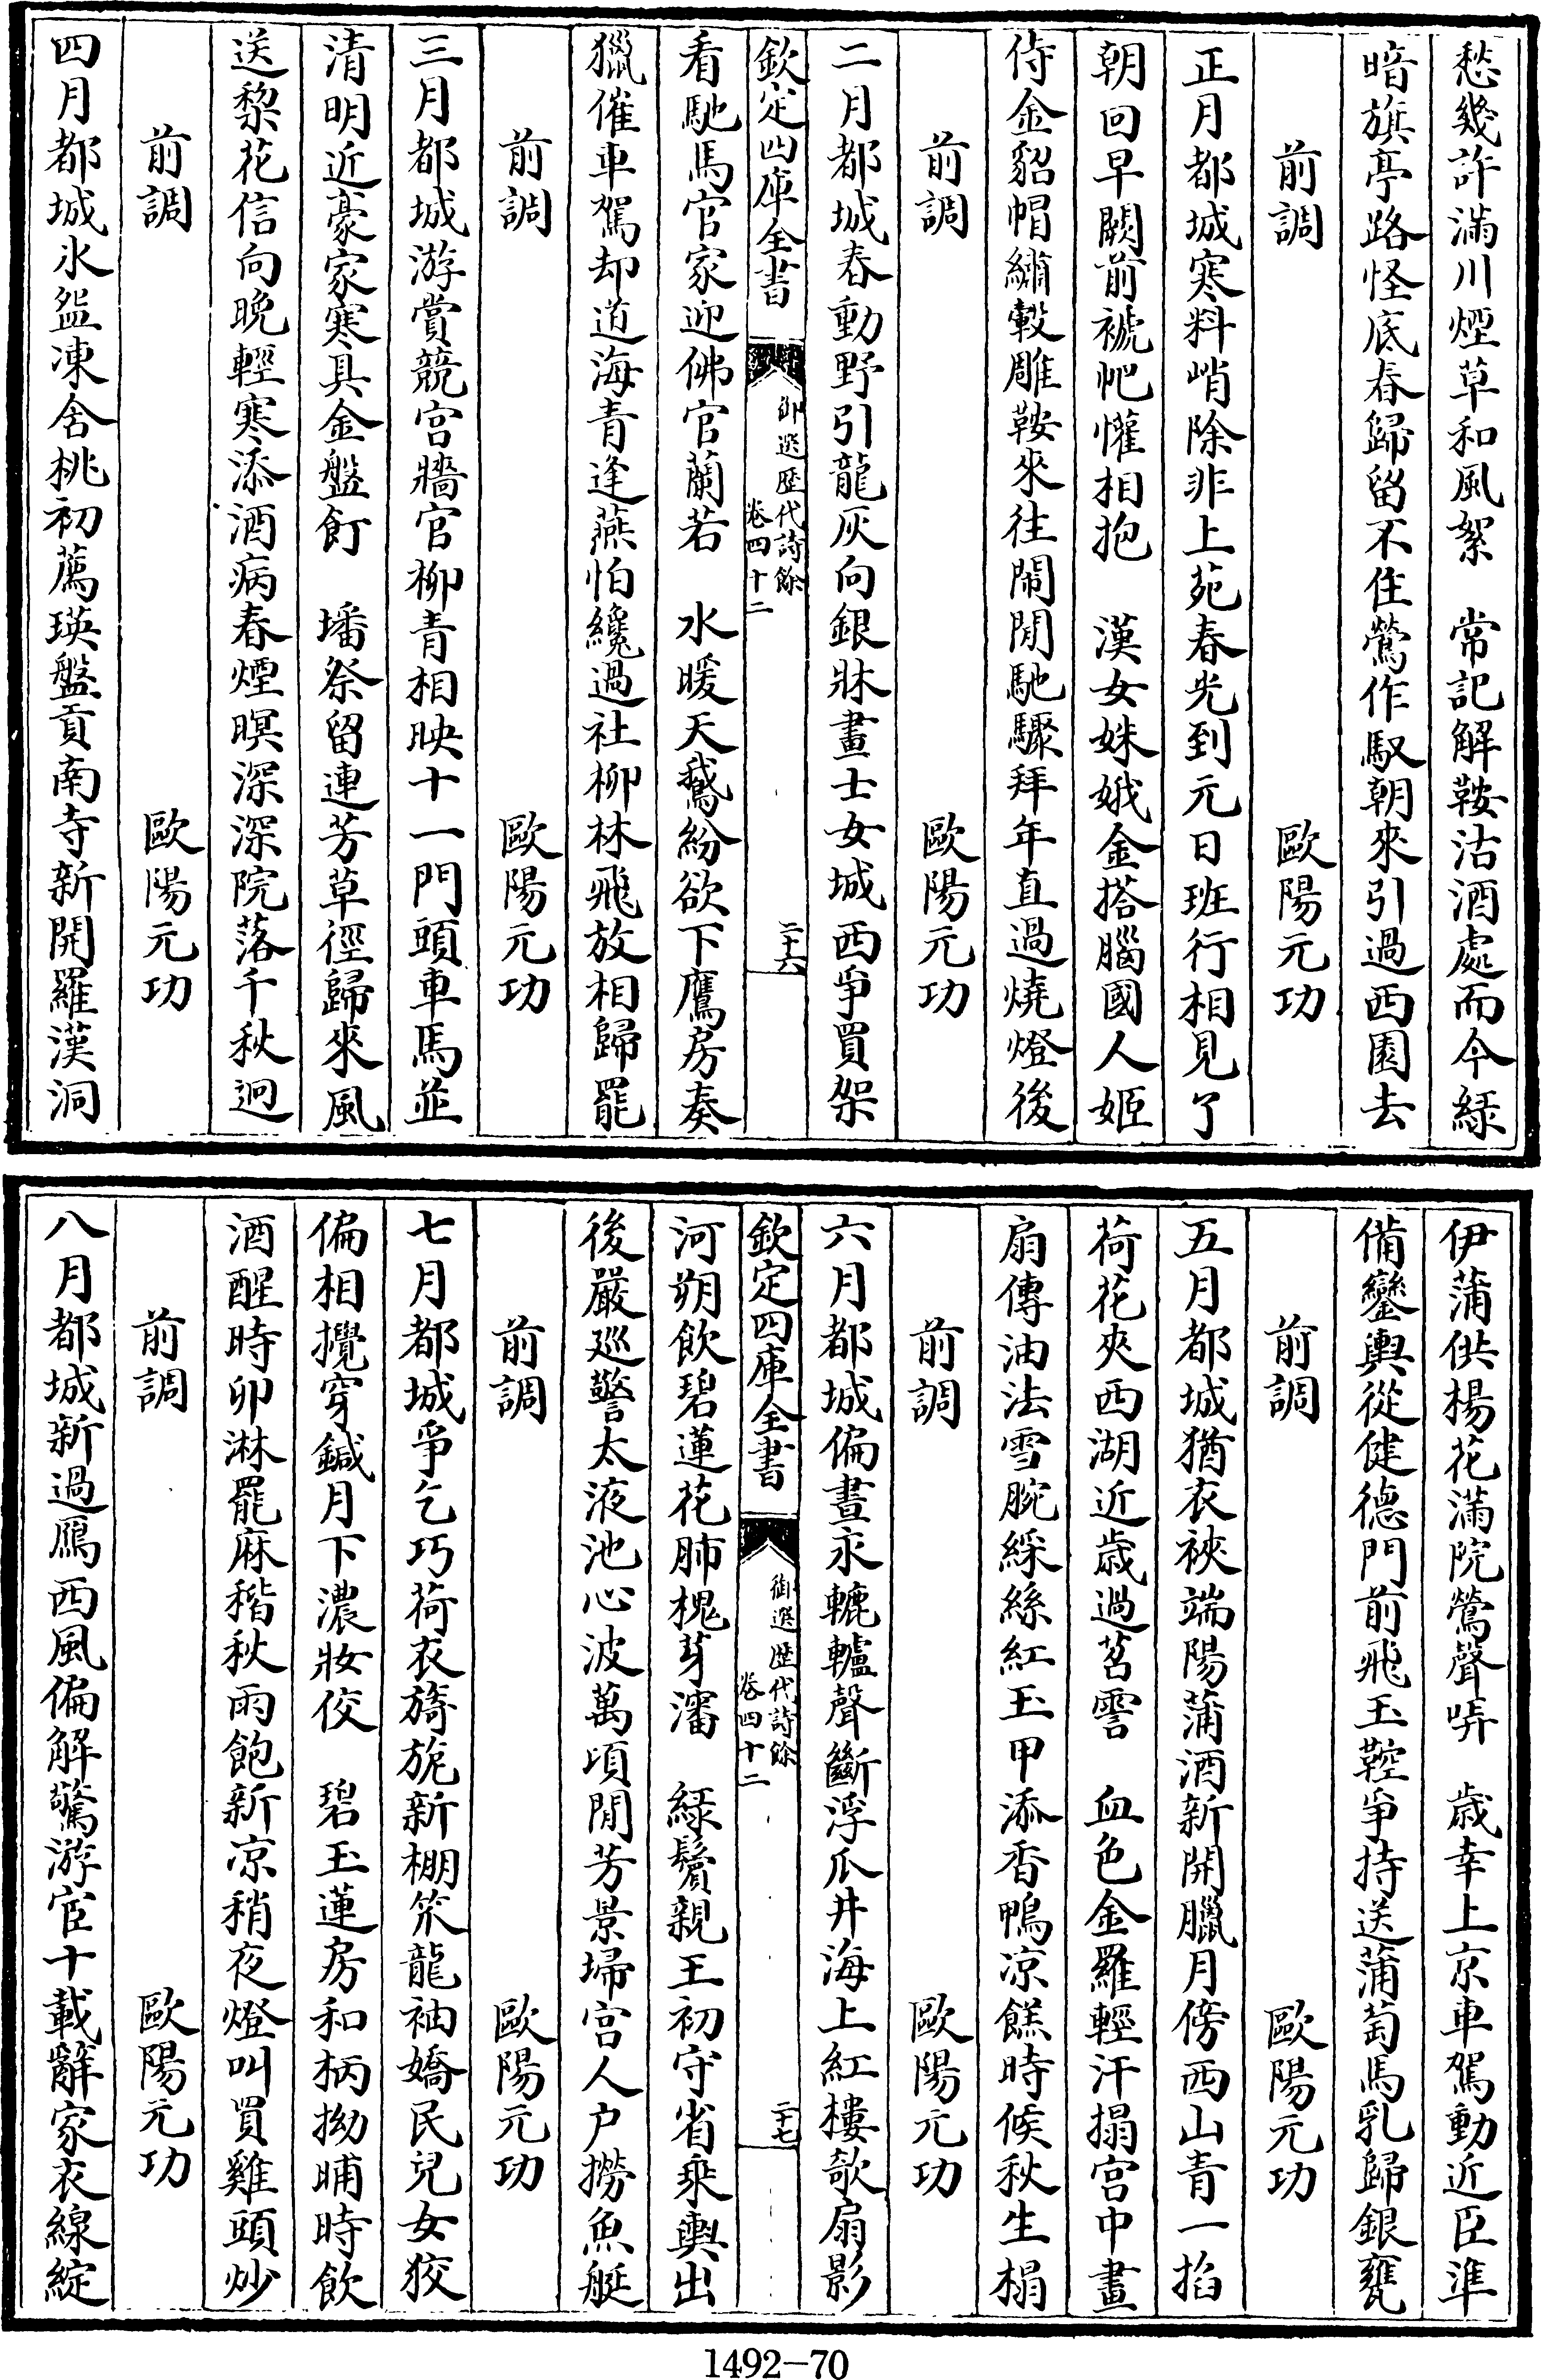 愁幾許滿川煙草和風絮　常記解鞍沽酒處而今緑
暗旗亭路怪底春歸留不住鶯作馭朝來引過西園去
前調　歐陽元功
正月都城寒料峭除非上苑春光到元日班行相見了
朝回早闕前褫帊懽相抱　漢女姝娥金搭腦國人姬
侍金貂帽繡轂雕鞍來往鬧閒馳驟拜年直過燒燈後
前調　歐陽元功
二月都城春動野引龍灰向銀牀畫士女城西爭買架
欽定四庫全書　御選歷代詩餘　卷四十二　二十六
看馳馬官家迎佛官蘭若　水暖天鵞紛欲下鷹房奏
獵催車駕却道海青逢燕怕纔過社柳林飛放相歸罷
前調　歐陽元功
三月都城游賞競宫牆官柳青相映十一門頭車馬並
清明近豪家寒具金盤飣　墦祭留連芳草徑歸來風
送棃花信向晚輕寒添酒病春煙暝深深院落千秋迥
前調　歐陽元功
四月都城氷盌凍含桃初薦瑛盤貢南寺新開羅漢洞
伊蒲供楊花滿院鶯聲哢　歳幸上京車駕動近臣準
備鑾輿從健德門前飛玉鞚爭持送蒲萄馬乳歸銀甕
前調　歐陽元功
五月都城猶衣裌端陽蒲酒新開臘月傍西山青一掐
荷花夾西湖近歳過苕霅　血色金羅輕汗搨宫中畫
扇傳油法雪腕綵絲紅玉甲添香鴨凉餻時候秋生榻
前調　歐陽元功
六月都城偏晝永轆轤聲斷浮瓜井海上紅樓欹扇影
欽定四庫全書　御選歷代詩餘　卷四十二　二十七
河朔飲碧蓮花肺槐芽瀋　緑鬢親王初守省乘輿出
後嚴巡警太液池心波萬頃閒芳景埽宫人户撈魚艇
前調　歐陽元功
七月都城爭乞巧荷衣旖旎新棚笊龍袖嬌民兒女狡
偏相攪穿鍼月下濃妝佼　碧玉蓮房和柄拗晡時飲
酒醒時卯淋罷麻稭秋雨飽新凉稍夜燈叫買雞頭炒
前調　歐陽元功
八月都城新過鴈西風偏解驚游宦十載辭家衣線綻
1492-70